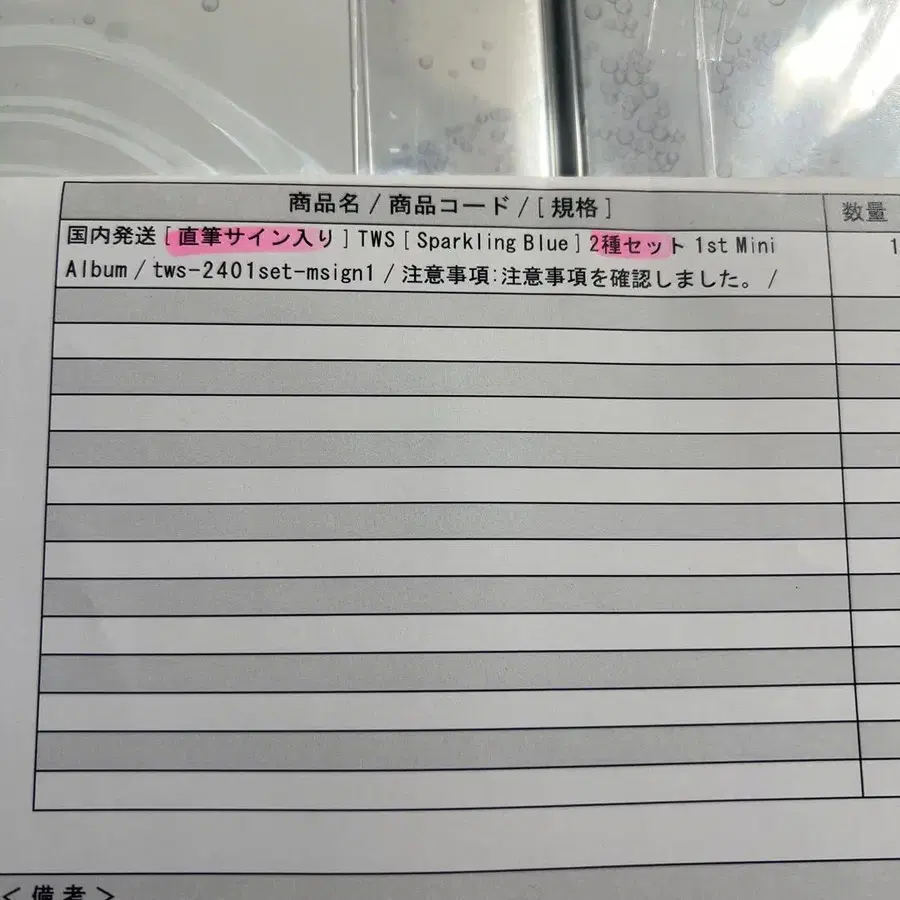 商品名 / 商品コード / [ 規格 ]
数量
国内発送 [ 直筆サイン入り ] TWS [ Sparkling Blue ] 2種セット 1st Mini
1
Album / tws-2401set-msign1 / 注意事項:注意事項を確認しました。 /
< 備考 >